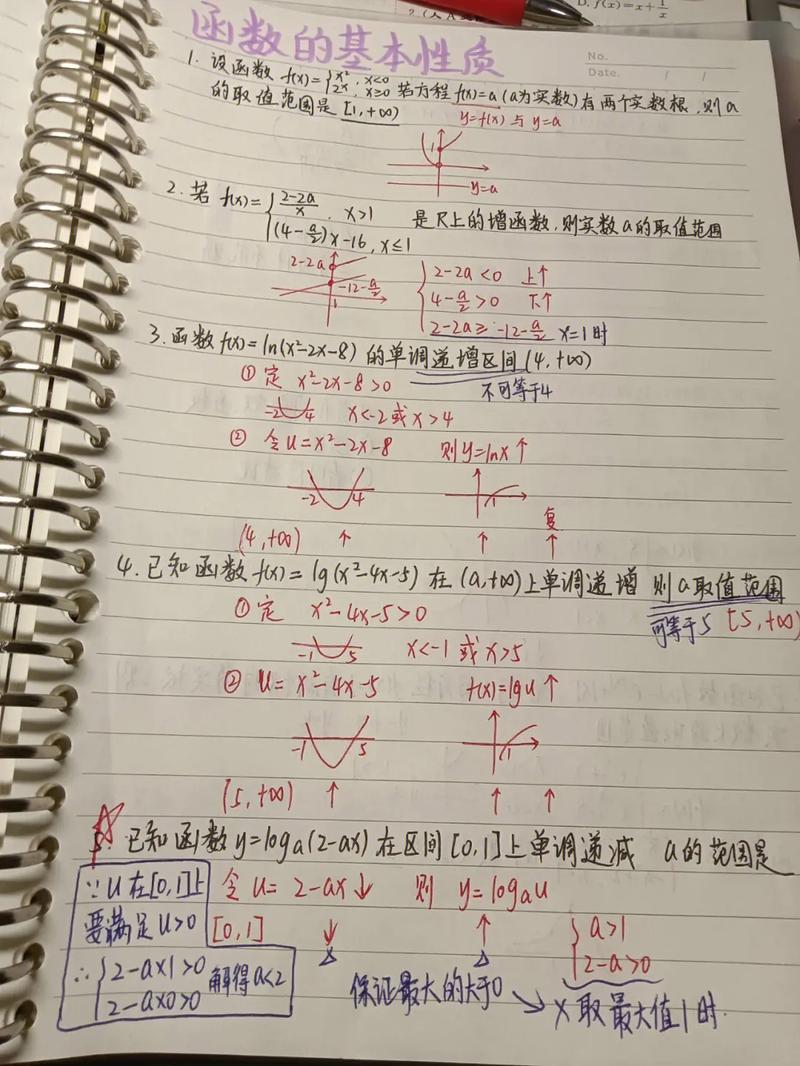 2.(人A
D. f(x)=x+1/x
函数的基本性质
No.
Date. / /
1. 设函数 f(x)={x², x<0 2x, x≥0 若方程 f(x)=a (a为实数) 有两个实数根,则a
的取值范围是 [1,+∞) y=f(x) 与 y=a
1
y=a
2. 若 f(x)={(2-2a)/x, x>1 (4-a/2)x-16, x≤1 是R上的增函数,则实数a的取值范围
2-2a
-12-a/2
1
{2-2a<0 上↑
4-a/2>0 下↑
2-2a≥-12-a/2 x=1时
3. 函数 f(x)=ln(x²-2x-8) 的单调递增区间 (4,+∞)
① 定 x²-2x-8>0 不可等于4
-2 4 x<-2 或 x>4
② 令 u=x²-2x-8 则 y=lnx ↑
-2 4 1
复
(4,+∞) ↑ ↑ ↑
4. 已知函数 f(x)=lg(x²-4x-5) 在 (a,+∞) 上单调递增 则a取值范围
① 定 x²-4x-5>0 可等于5 [5,+∞)
-1 5 x<-1 或 x>5
② u=x²-4x-5 f(x)=lgu ↑
-1 5 1
(5,+∞) ↑ ↑ ↑
已知函数 y=logₐ(2-ax) 在区间 [0,1] 上单调递减 a的范围是
∵u在[0,1]上 令 u=2-ax↓ 则 y=logₐu
要满足u>0 [0,1] ↓ ↑ {a>1
2-a>0
∴{2-a×1>0 2-a×0>0 解得a<2
保证最大的大于0 → x取最大值1时.